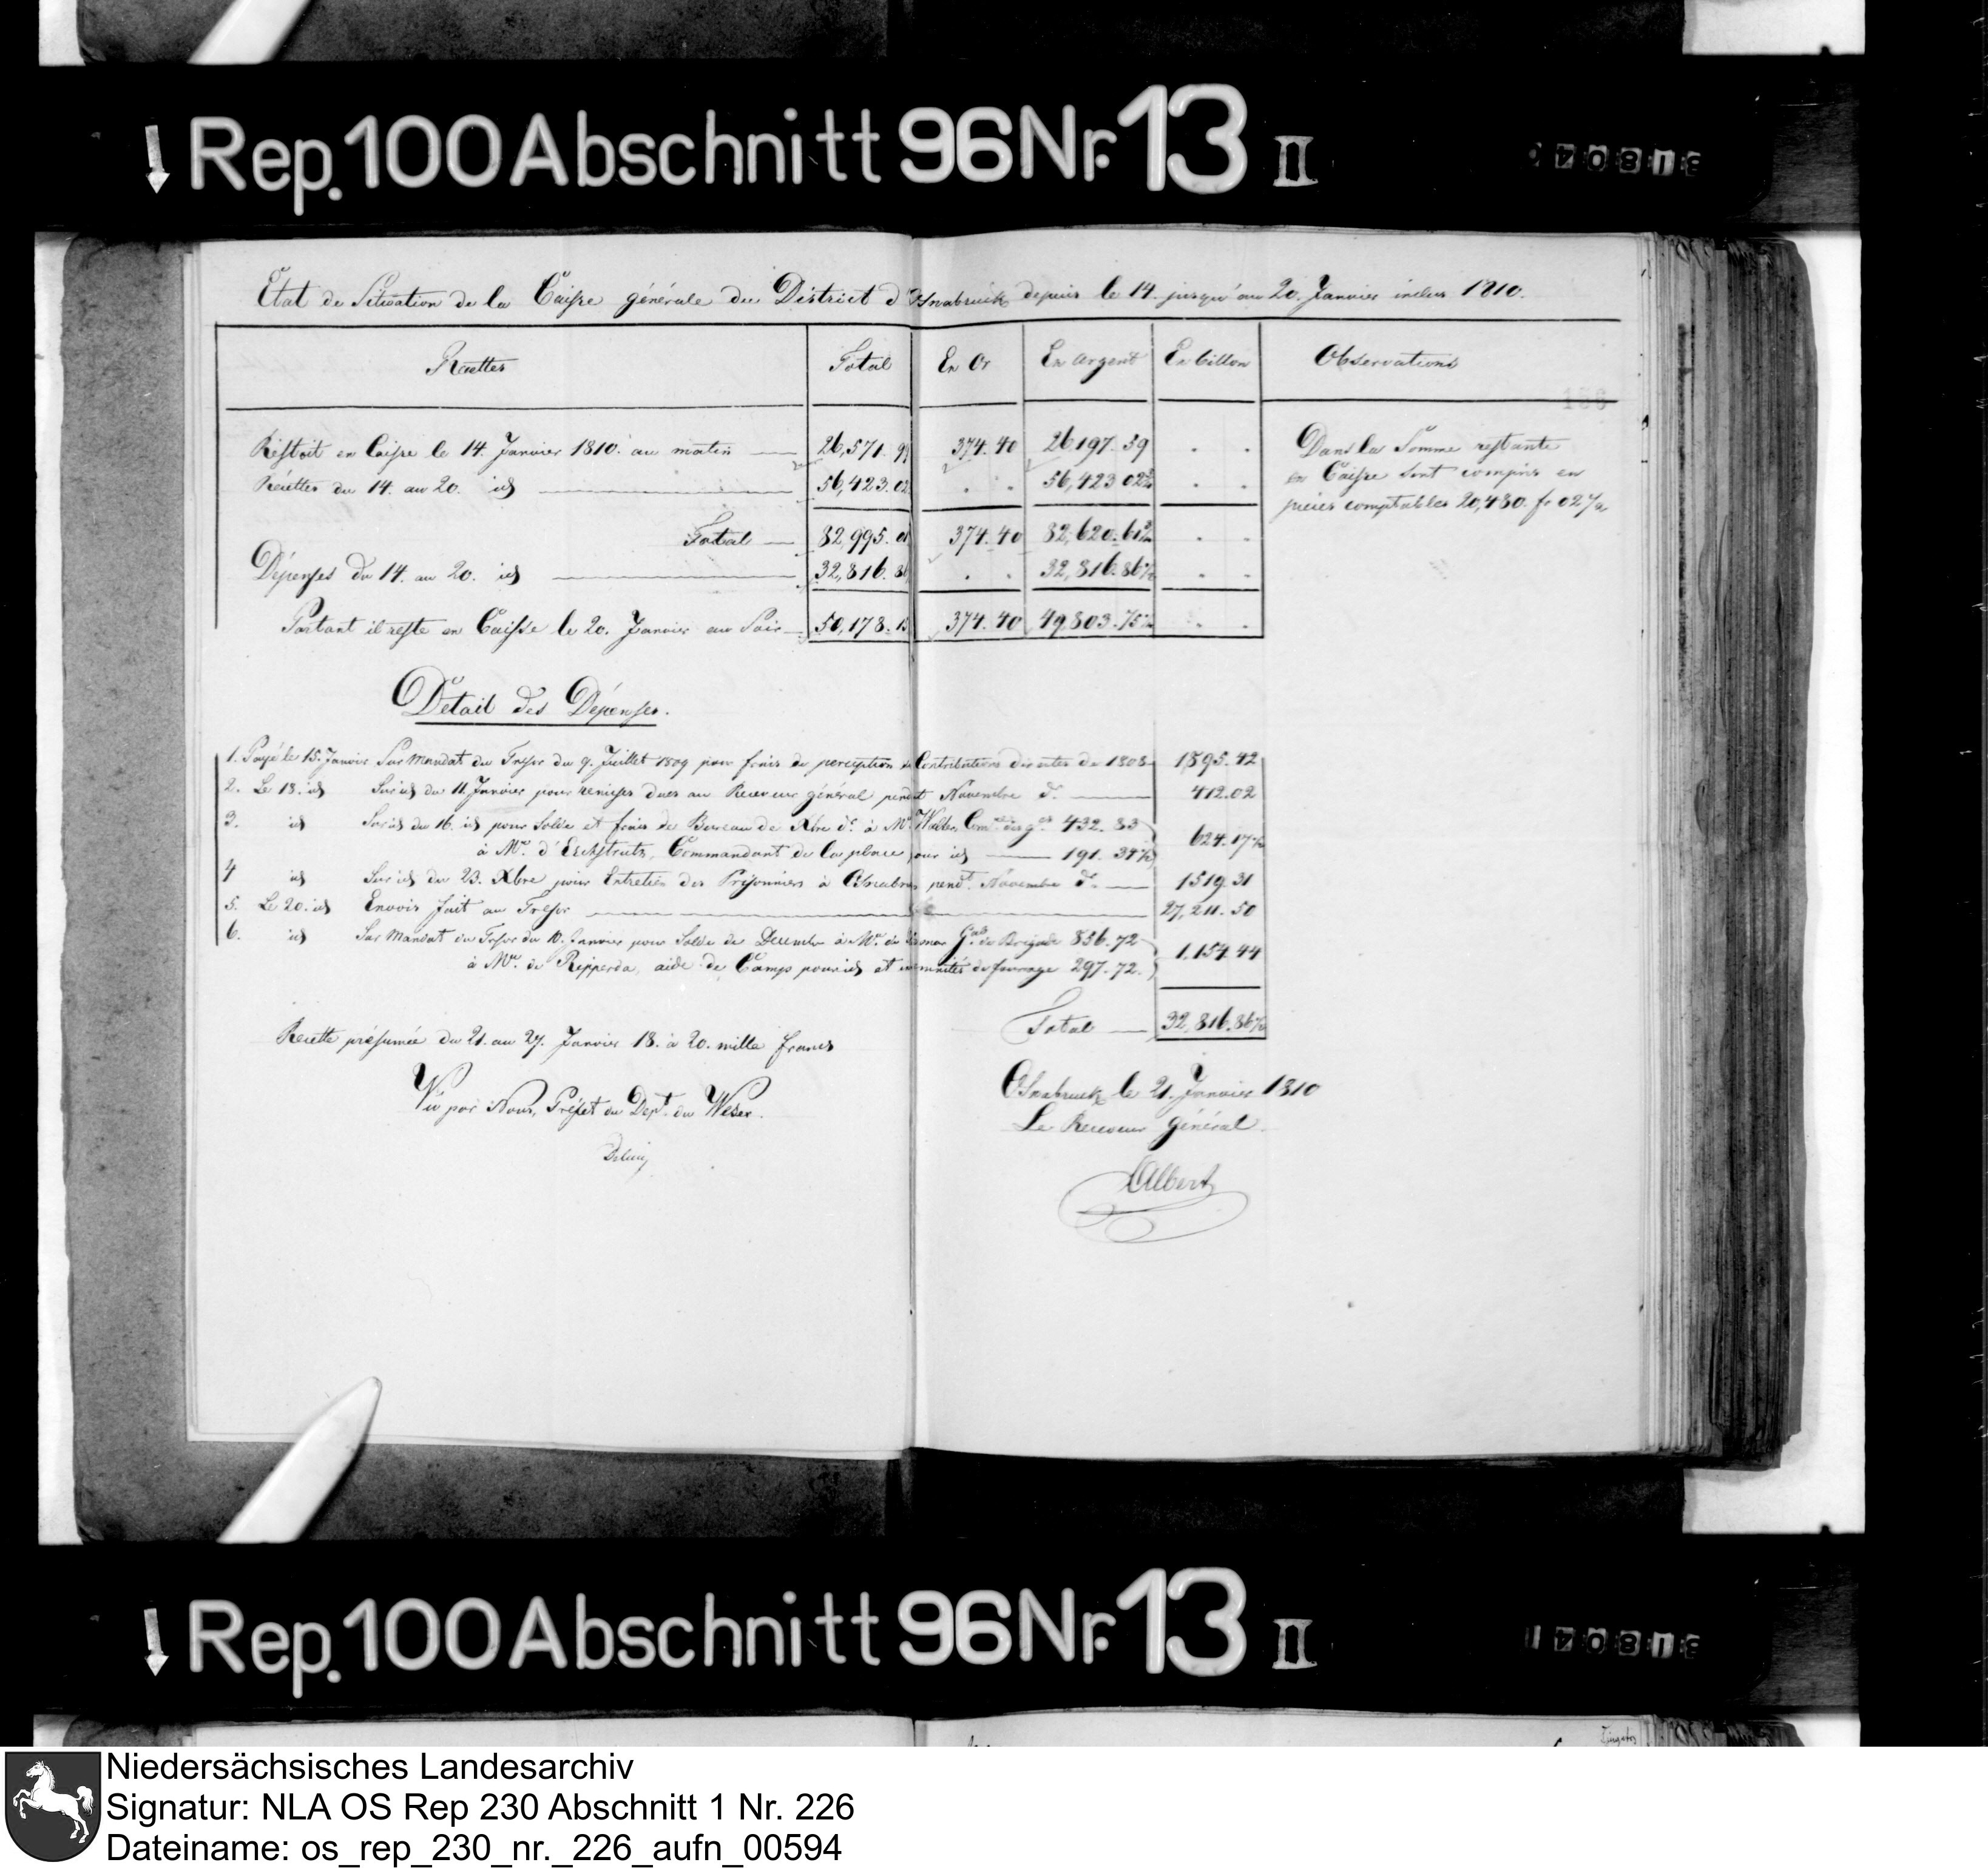 Rep. 100 Abschnitt 96 Nr. 13 II
Etat de Situation de la Caisse générale du District d'Osnabruck depuis le 14. jusqu'au 20. Janvier inclus 1810.
Recettes Total En Or En Argent En billon Observations
Restoit en Caisse le 14. Janvier 1810. au matin 26,571. 99 374. 40 26197. 59 . .
Recettes du 14. au 20. id 56,423. 02 . . 56,423 02½ . .
Total 82,995. 01 374. 40 82,620. 61½ . .
Dépenses du 14. au 20. id 32,816. 86 . . 32,816. 86½ . .
Partant il reste en Caisse le 20. Janvier au Soir 50,178. 15 374. 40 49,803. 75 . .
Dans la Somme restante
en Caisse sont compris en
pièces comptables 20,480. fr 02½
Détail des Dépenses.
1. Payé le 15. Janvier Sur Mandat du Tresor du 9. Juillet 1809 pour frais de perception de Contributions directes de 1808 1895. 42
2. Le 18. id Sur id du 11. Janvier pour remises dues au Receveur général pendant Novembre d.° 412. 02
3. id Sur id du 16. id pour Solde et frais de Bureau de Xbre d.° à Mr. 432. 83
à Mr. d'Eschstruth, Commandant de la place pour id 191. 34½ 624. 17½
4 id Sur id du 23. Xbre pour Entretien des Prisonniers à pend.t Novembre d.° 1519. 31
5. Le 20. id Envois fait au Tresor 27,211. 50
6. id Sur Mandat du Tresor du 10. Janvier pour Solde de Decembre à Mr. de G.al de Brigade 856. 72
à Mr. de Ripperda, aide de Camps pour id et indemnités de fourage 297. 72. 1,154. 44
Total 32,816. 86½
Recette présumée du 21. au 27. Janvier 18. à 20. mille francs
Vu par Nous, Préfet du Dept. du Weser.
Osnabruck le 21. Janvier 1810
Le Receveur général
Albert
Rep. 100 Abschnitt 96 Nr. 13 II
Niedersächsisches Landesarchiv
Signatur: NLA OS Rep 230 Abschnitt 1 Nr. 226
Dateiname: os_rep_230_nr._226_aufn_00594